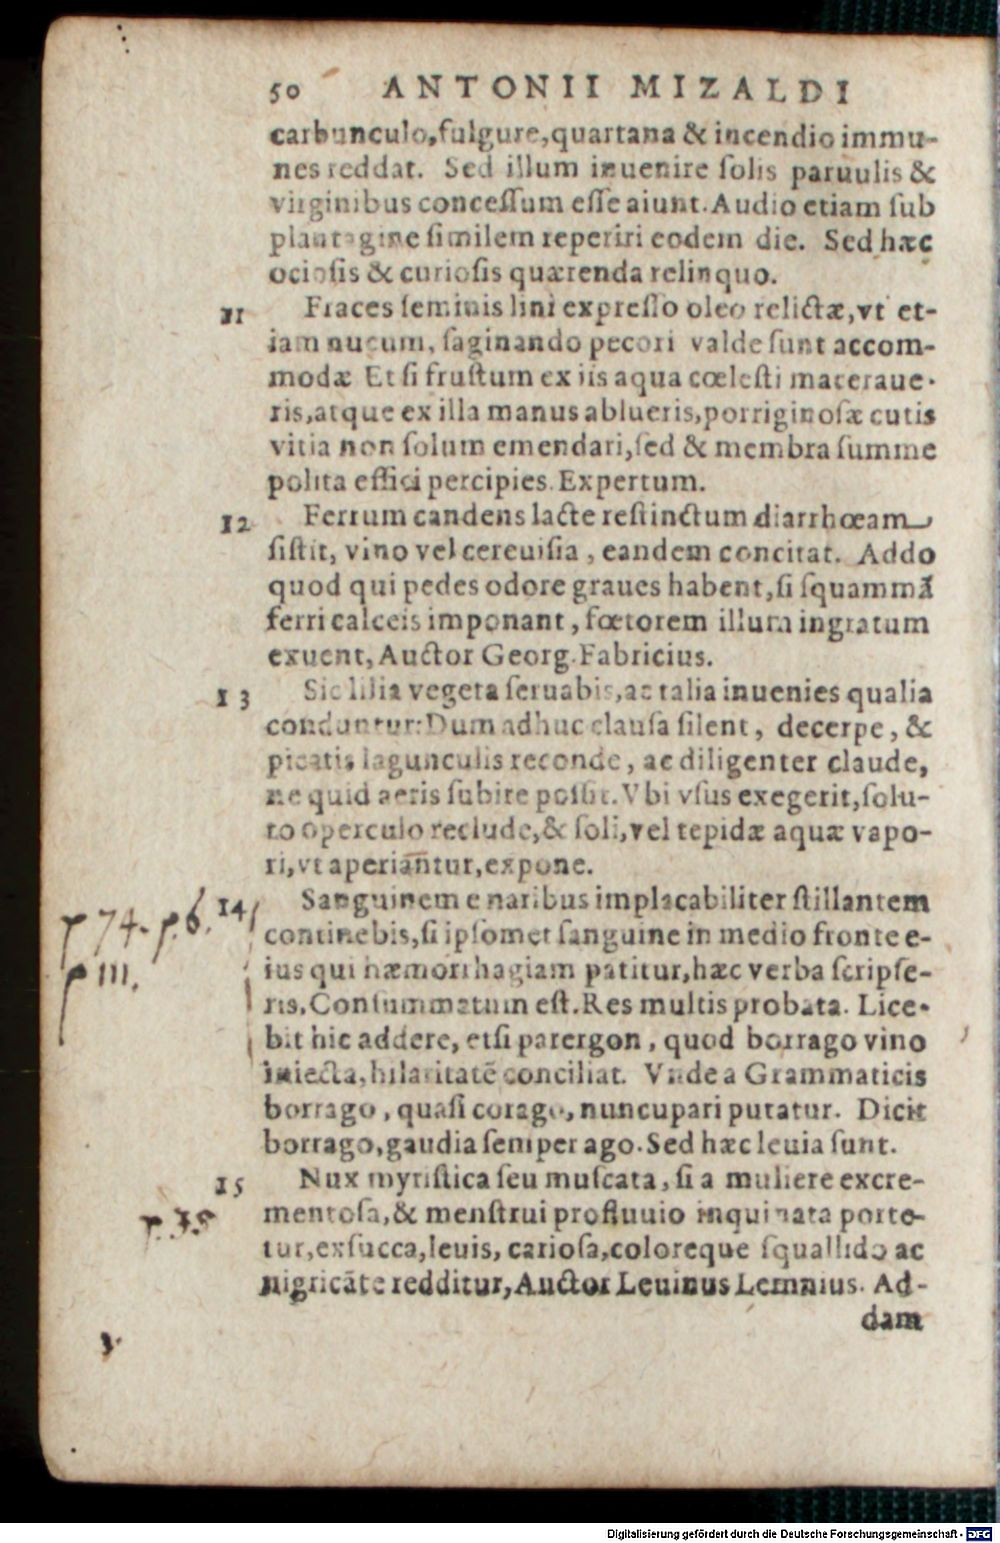 50 ANTONII MIZALDI
carbunculo, fulgure, quartana & incendio immu-
nes reddat. Sed illum inuenire ſolis paruulis &
virginibus conceſſum eſſe aiunt. Audio etiam ſub
plantagine ſimilem reperiri eodem die. Sed hæc
ocioſis & curioſis quærenda relinquo.
11 Fraces ſeminis lini expreſſo oleo relictæ, vt et-
iam nucum, ſaginando pecori valde ſunt accom-
modæ Et ſi fruſtum ex iis aqua cœleſti maceraue-
ris, atque ex illa manus ablueris, porriginoſæ cutis
vitia non ſolum emendari, ſed & membra ſumme
polita effici percipies. Expertum.
12 Ferrum candens lacte reſtinctum diarrhœam
ſiſtit, vino vel cereuiſia, eandem concitat. Addo
quod qui pedes odore graues habent, ſi ſquammã
ferri calceis imponant, fœtorem illum ingratum
exuent, Auctor Georg. Fabricius.
13 Sic lilia vegeta ſeruabis, ac talia inuenies qualia
conduntur: Dum adhuc clauſa ſilent, decerpe, &
picatis lagunculis reconde, ac diligenter claude,
ne quid aeris ſubire poſſit. Vbi vſus exegerit, ſolu-
to operculo reclude, & ſoli, vel tepidæ aquæ vapo-
ri, vt aperiantur, expone.
p 74. p. 6. 14 Sanguinem e naribus implacabiliter ſtillantem
continebis, ſi ipſomet ſanguine in medio fronte e-
p 111. ius qui hæmorrhagiam patitur, hæc verba ſcripſe-
ris, Conſummatum eſt. Res multis probata. Lice-
bit hic addere, etſi parergon, quod borrago vino
iniecta, hilaritatẽ conciliat. Vnde a Grammaticis
borrago, quaſi corago, nuncupari putatur. Dicit
borrago, gaudia ſemper ago. Sed hæc leuia ſunt.
15 Nux myriſtica ſeu muſcata, ſi a muliere excre-
p. 35 mentoſa, & menſtrui profluuio inquinata porte-
tur, exſucca, leuis, carioſa, coloreque ſquallido ac
nigricãte redditur, Auctor Leuinus Lemnius. Ad-
dam
Digitalisierung gefördert durch die Deutsche Forschungsgemeinschaft - DFG